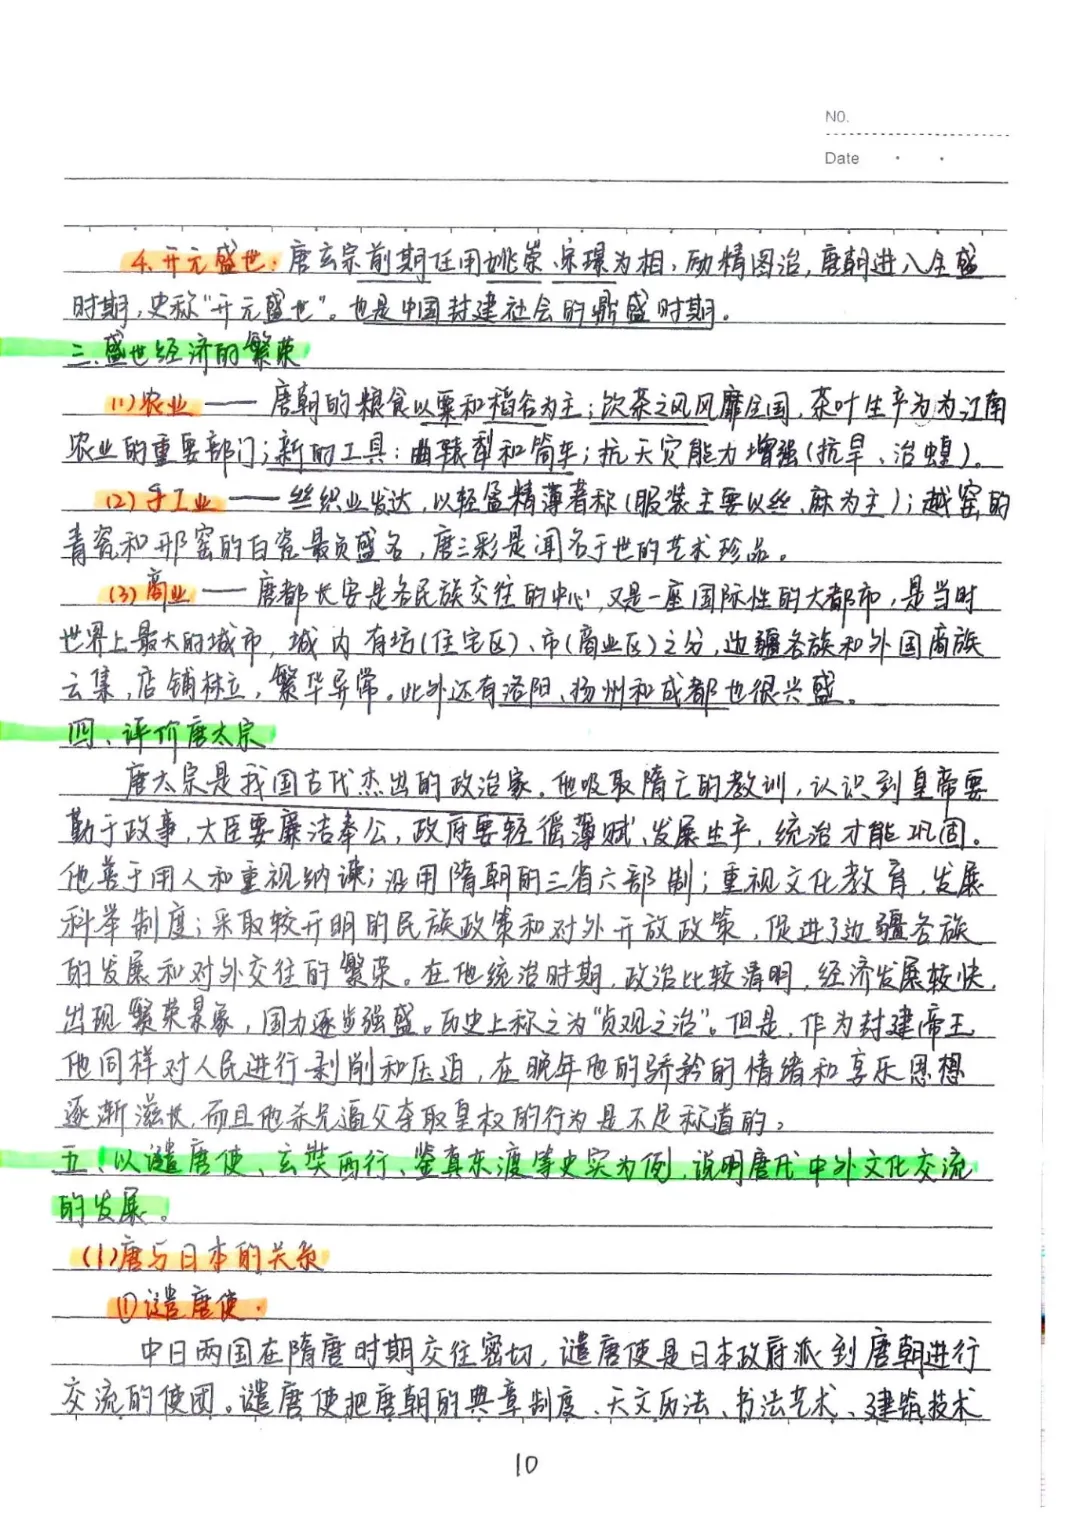 NO.
Date
4.开元盛世：唐玄宗前期任用姚崇、宋璟为相，励精图治，唐朝进入全盛
时期，史称“开元盛世”。也是中国封建社会的鼎盛时期。
三.盛世经济的繁荣
(1)农业——唐朝的粮食以粟和稻谷为主；饮茶之风风靡全国，茶叶生产为为江南
农业的重要部门；新的工具：曲辕犁和筒车；抗天灾能力增强(抗旱、治蝗)。
(2)手工业——丝织业发达，以轻盈精薄著称(服装主要以丝、麻为主)；越窑的
青瓷和邢窑的白瓷最负盛名，唐三彩是闻名于世的艺术珍品。
(3)商业——唐都长安是各民族交往的中心，又是一座国际性的大都市，是当时
世界上最大的城市，城内有坊(住宅区)、市(商业区)之分，边疆各族和外国商族
云集，店铺林立，繁华异常。此外还有洛阳、扬州和成都也很兴盛。
四、评价唐太宗
唐太宗是我国古代杰出的政治家。他吸取隋亡的教训，认识到皇帝要
勤于政事，大臣要廉洁奉公，政府要轻徭薄赋、发展生产，统治才能巩固。
他善于用人和重视纳谏；沿用隋朝的三省六部制；重视文化教育，发展
科举制度；采取较开明的民族政策和对外开放政策，促进了边疆各族
的发展和对外交往的繁荣。在他统治时期，政治比较清明，经济发展较快，
出现繁荣景象，国力逐步强盛。历史上称之为“贞观之治”。但是，作为封建帝王，
他同样对人民进行剥削和压迫，在晚年他的骄矜的情绪和享乐思想
逐渐滋长，而且他杀兄逼父夺取皇权的行为是不足称道的。
五、以遣唐使、玄奘西行、鉴真东渡等史实为例，说明唐代中外文化交流
的发展。
(1)唐与日本的关系
①遣唐使.
中日两国在隋唐时期交往密切，遣唐使是日本政府派到唐朝进行
交流的使团。遣唐使把唐朝的典章制度、天文历法、书法艺术、建筑技术
10